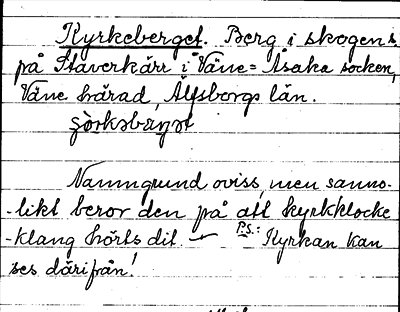 Kyrkeberget. Berg i skogen
på Staverkärr i Väne-Åsaka socken,
Väne härad, Älfsborgs län.
Namngrund oviss, men sanno-
-likt beror den på att kyrkklocke
-klang hörts dit. — P.S.: Kyrkan kan
ses därifrån!